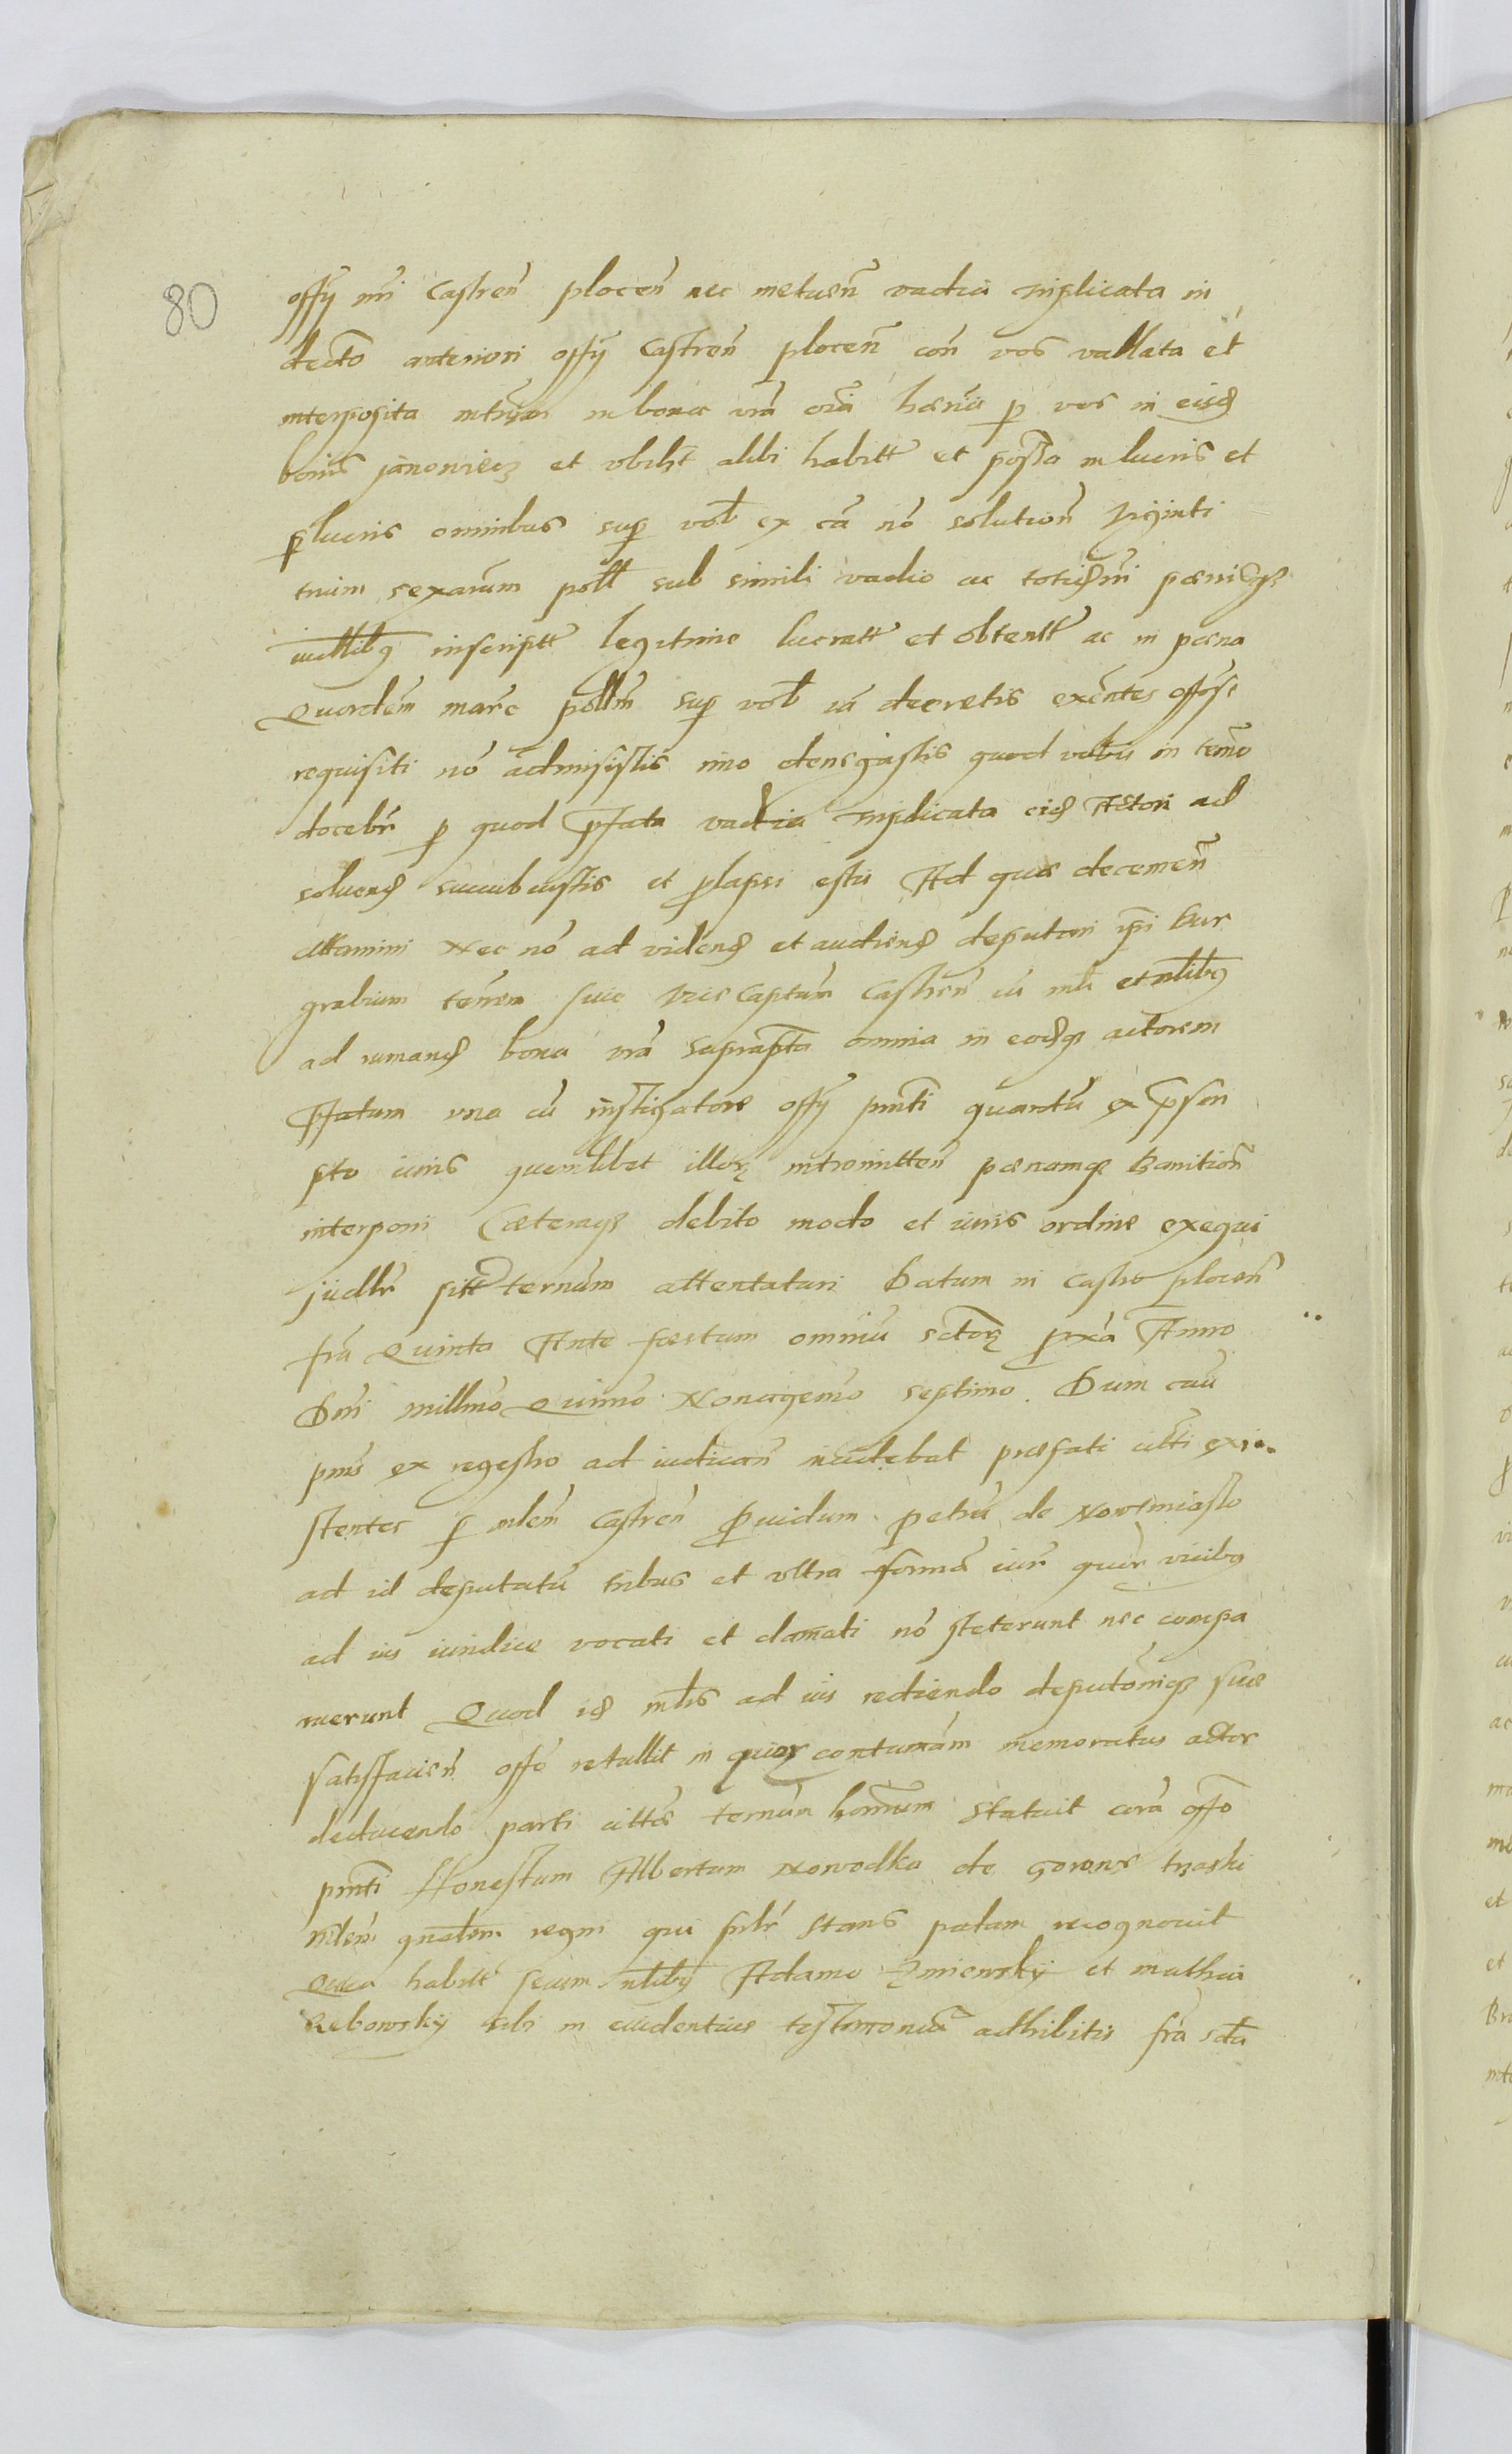 80
offÿ nri Castren̄ plocen̄ nec metuen̄ vadia triplicata in
decto anteriori offÿ Castren̄ plocen̄ con̄ vos vallata et
interposita in bona vrā om̄ia p vos in eisd
bonis Janowiecz et vbilt alibi habitt et possa in lucris et
p lucris omnibus sup vob ex cā nō solution̄ viginti
trium sexarum poll sub simili vadio ac
inscriptt legitime lucratt et obtentt ac in paena
Quordem marc pollm sup vob iā decretis offose
requisiti nō admisistis imo denegastis quod vobis in termo
docebr p quod pfata vadia triplicata eid Actori ad
soluend succubuistis et plapsi estis Ad quae decernen̄
attamini Nec nō ad videnḍ et audienḍ deputari ipi bur
grabium terren siue vice Captum Castren̄ cū mli et nlibꝰ
ad bona vrā suprapta omnia in eosdqꝫ actorem
Pfatum vna cū instigatore offÿ pnti quantū ex pscri
pto iuris quemlibet illoꝝ intromitten̄ paenamqꝫ banition̄
interponi Caeteraqꝫ debito modo et iuris ordine exequi
judlr sitt ternum attentaturi Datum in Castro plocen̄
fria Quinta Ante festum omniū sctorꝝ pxīa Anno
Dni millmo Quinmo Nonagemo septimo. Dum cau
pns ex regestro ad iudican̄ incidebat praefati citti exi
stentes p mlem Castren̄ Puidum petrū de Nowemiasto
ad id deputatū tribus et vltra formā iur quar vicibꝰ
ad ius iuridice vocati et clamati nō steterunt nec compa
ruerunt Quod id mlis ad ius rediendo deputoniqꝫ suae
satisfacien̄ offo retullit in quoꝝ contumām memoratus actor
deducendo parti cittae ternum bannum statuit corā offo
pnti Honestum Albertum Nowodka de Gorone traski
mlem gnalem regni qui pblr stans palam recognouit
Quia habitt secum nlibꝰ Adamo Zmiewskÿ et mathia
Rebowskÿ sibi in euidentius testimoniū adhibitis fria scda